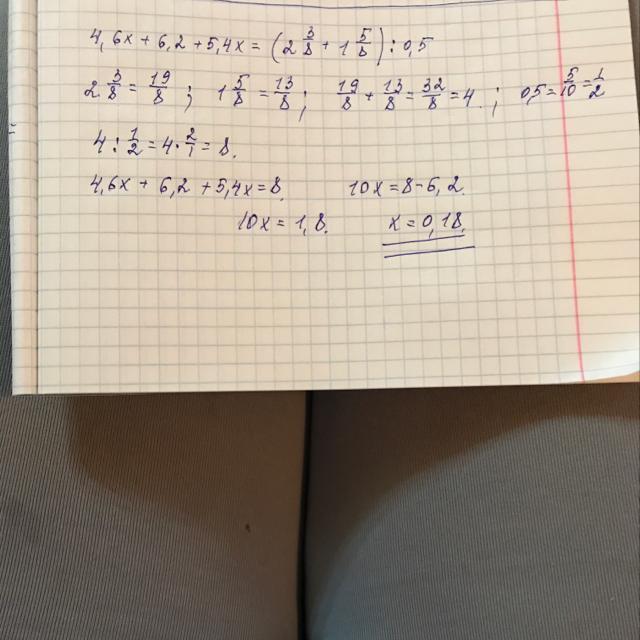 4,6x + 6,2 + 5,4x = (2 3/8 + 1 5/8) : 0,5
2 3/8 = 19/8 ; 1 5/8 = 13/8 ; 19/8 + 13/8 = 32/8 = 4 ; 0,5 = 5/10 = 1/2
4 : 1/2 = 4 · 2/1 = 8.
4,6x + 6,2 + 5,4x = 8. 10x = 8 - 6,2.
10x = 1,8. x = 0,18.